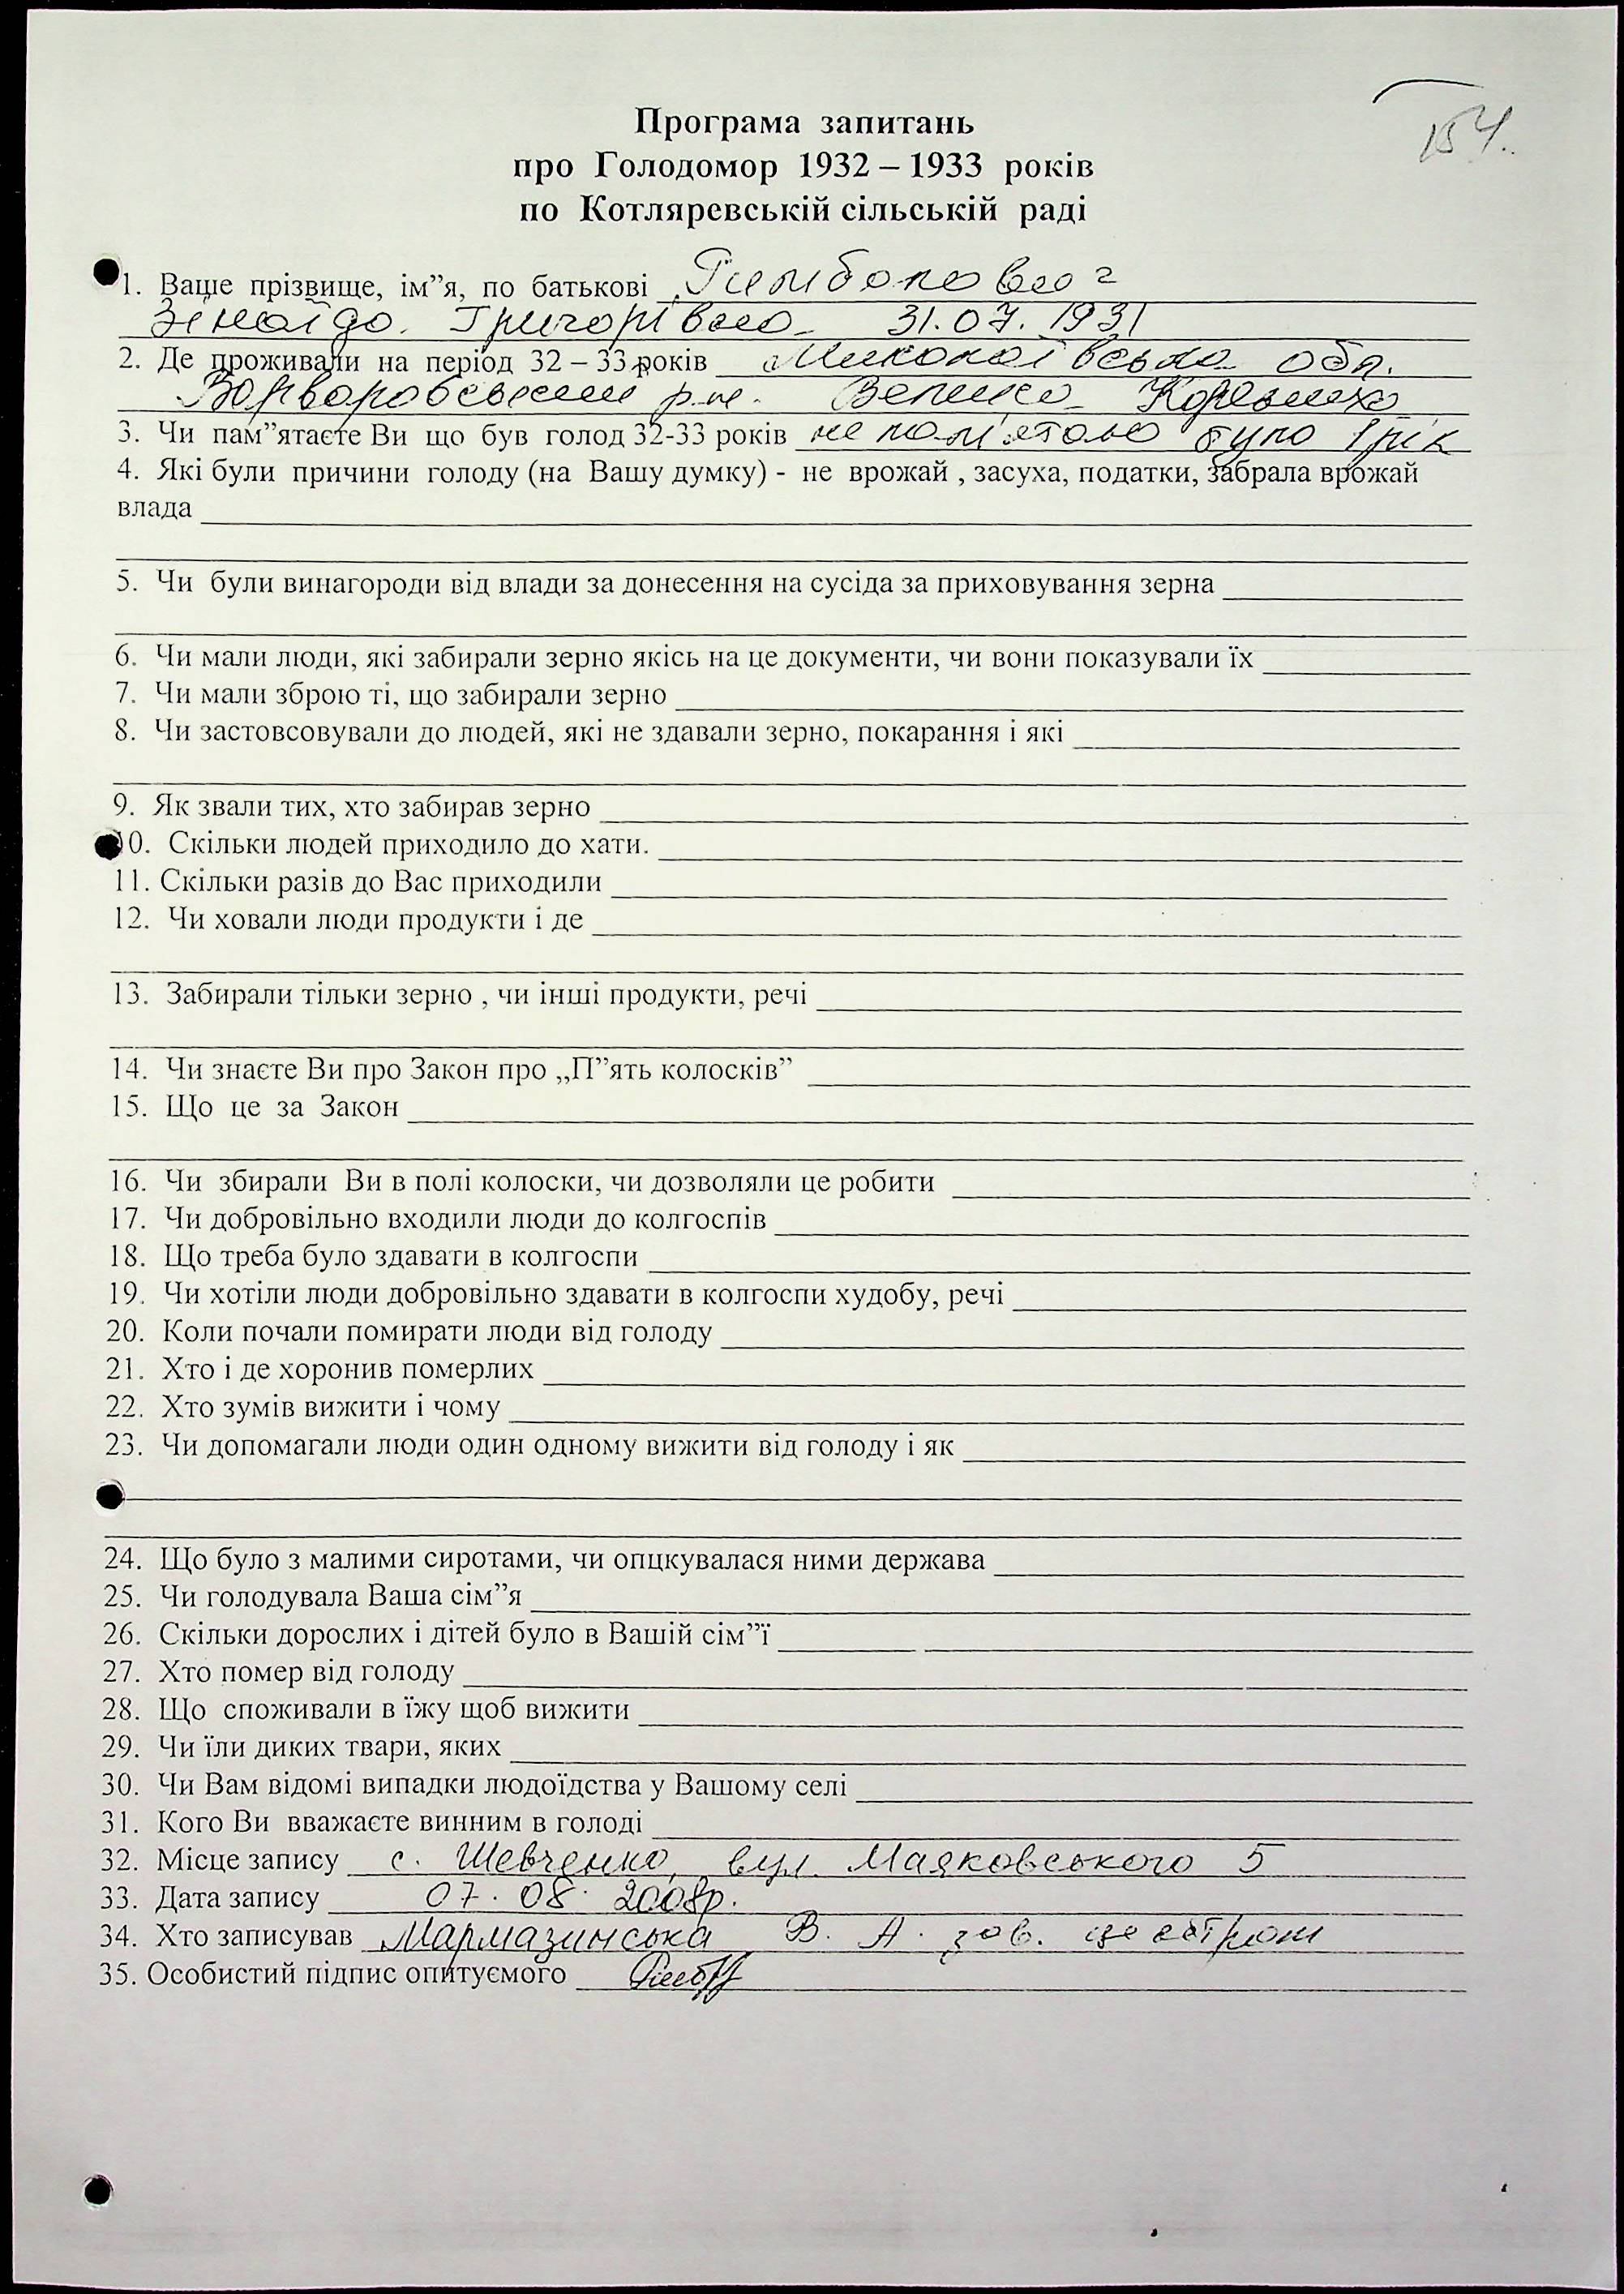 154.
Програма запитань
про Голодомор 1932 – 1933 років
по Котляревській сільській раді
1. Ваше прізвище, ім”я, по батькові
Зінаїда Григорівна 31.07.1931
2. Де проживали на період 32 – 33 років Миколаївська обл.
Варваровський р-н. Велика Корениха
3. Чи пам”ятаєте Ви що був голод 32-33 років не пам'ятаю було 1 рік
4. Які були причини голоду (на Вашу думку) - не врожай , засуха, податки, забрала врожай
влада
5. Чи були винагороди від влади за донесення на сусіда за приховування зерна
6. Чи мали люди, які забирали зерно якісь на це документи, чи вони показували їх
7. Чи мали зброю ті, що забирали зерно
8. Чи застовсовували до людей, які не здавали зерно, покарання і які
9. Як звали тих, хто забирав зерно
10. Скільки людей приходило до хати.
11. Скільки разів до Вас приходили
12. Чи ховали люди продукти і де
13. Забирали тільки зерно , чи інші продукти, речі
14. Чи знаєте Ви про Закон про „П”ять колосків”
15. Що це за Закон
16. Чи збирали Ви в полі колоски, чи дозволяли це робити
17. Чи добровільно входили люди до колгоспів
18. Що треба було здавати в колгоспи
19. Чи хотіли люди добровільно здавати в колгоспи худобу, речі
20. Коли почали помирати люди від голоду
21. Хто і де хоронив померлих
22. Хто зумів вижити і чому
23. Чи допомагали люди один одному вижити від голоду і як
24. Що було з малими сиротами, чи опцкувалася ними держава
25. Чи голодувала Ваша сім”я
26. Скільки дорослих і дітей було в Вашій сім”ї
27. Хто помер від голоду
28. Що споживали в їжу щоб вижити
29. Чи їли диких твари, яких
30. Чи Вам відомі випадки людоїдства у Вашому селі
31. Кого Ви вважаєте винним в голоді
32. Місце запису с. Шевченко, вул. Маяковського 5
33. Дата запису 07. 08. 2008р.
34. Хто записував Мармазинська В. А. зав.
35. Особистий підпис опитуємого